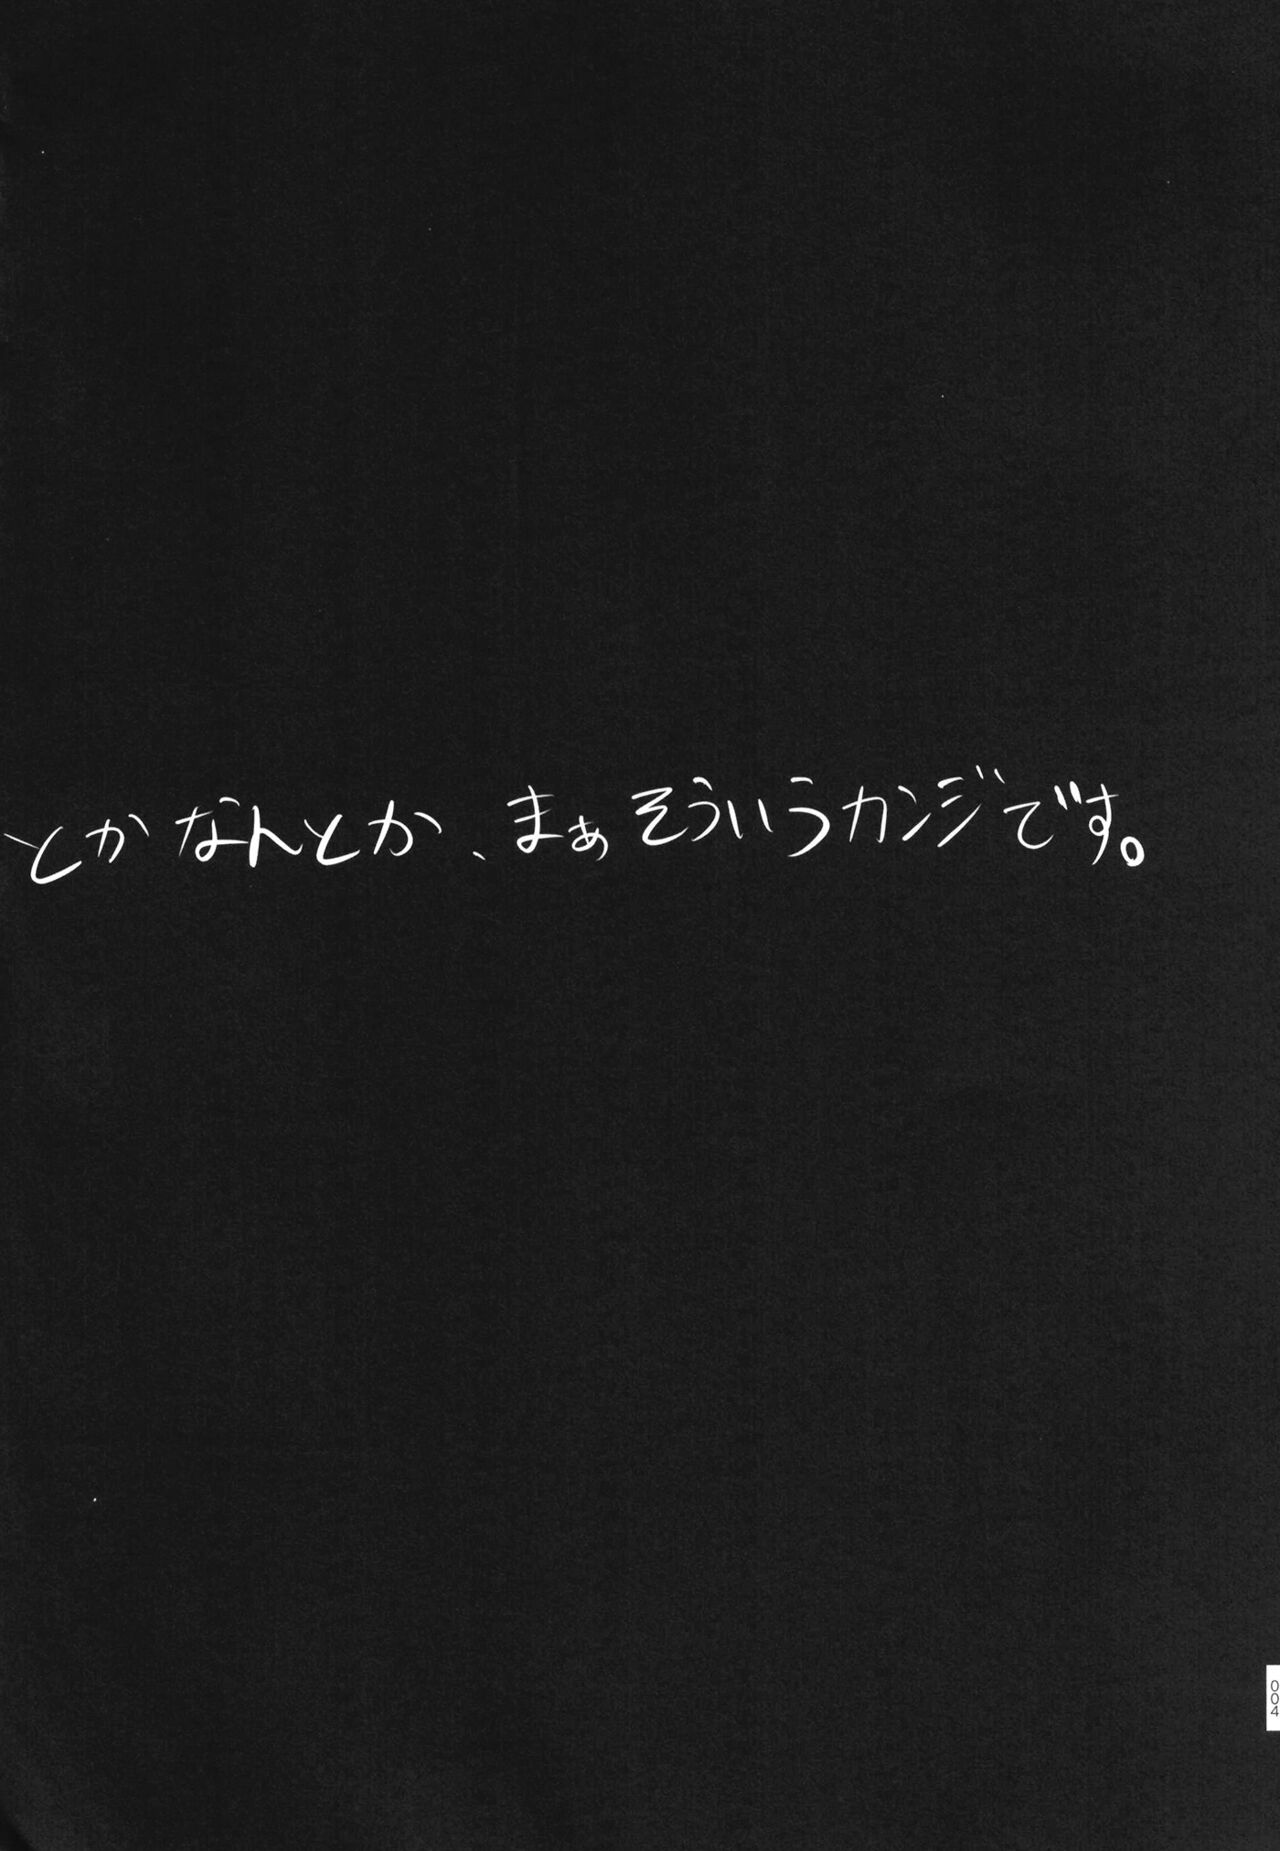 とか なんとか、まぁ そういうカンジです。
004